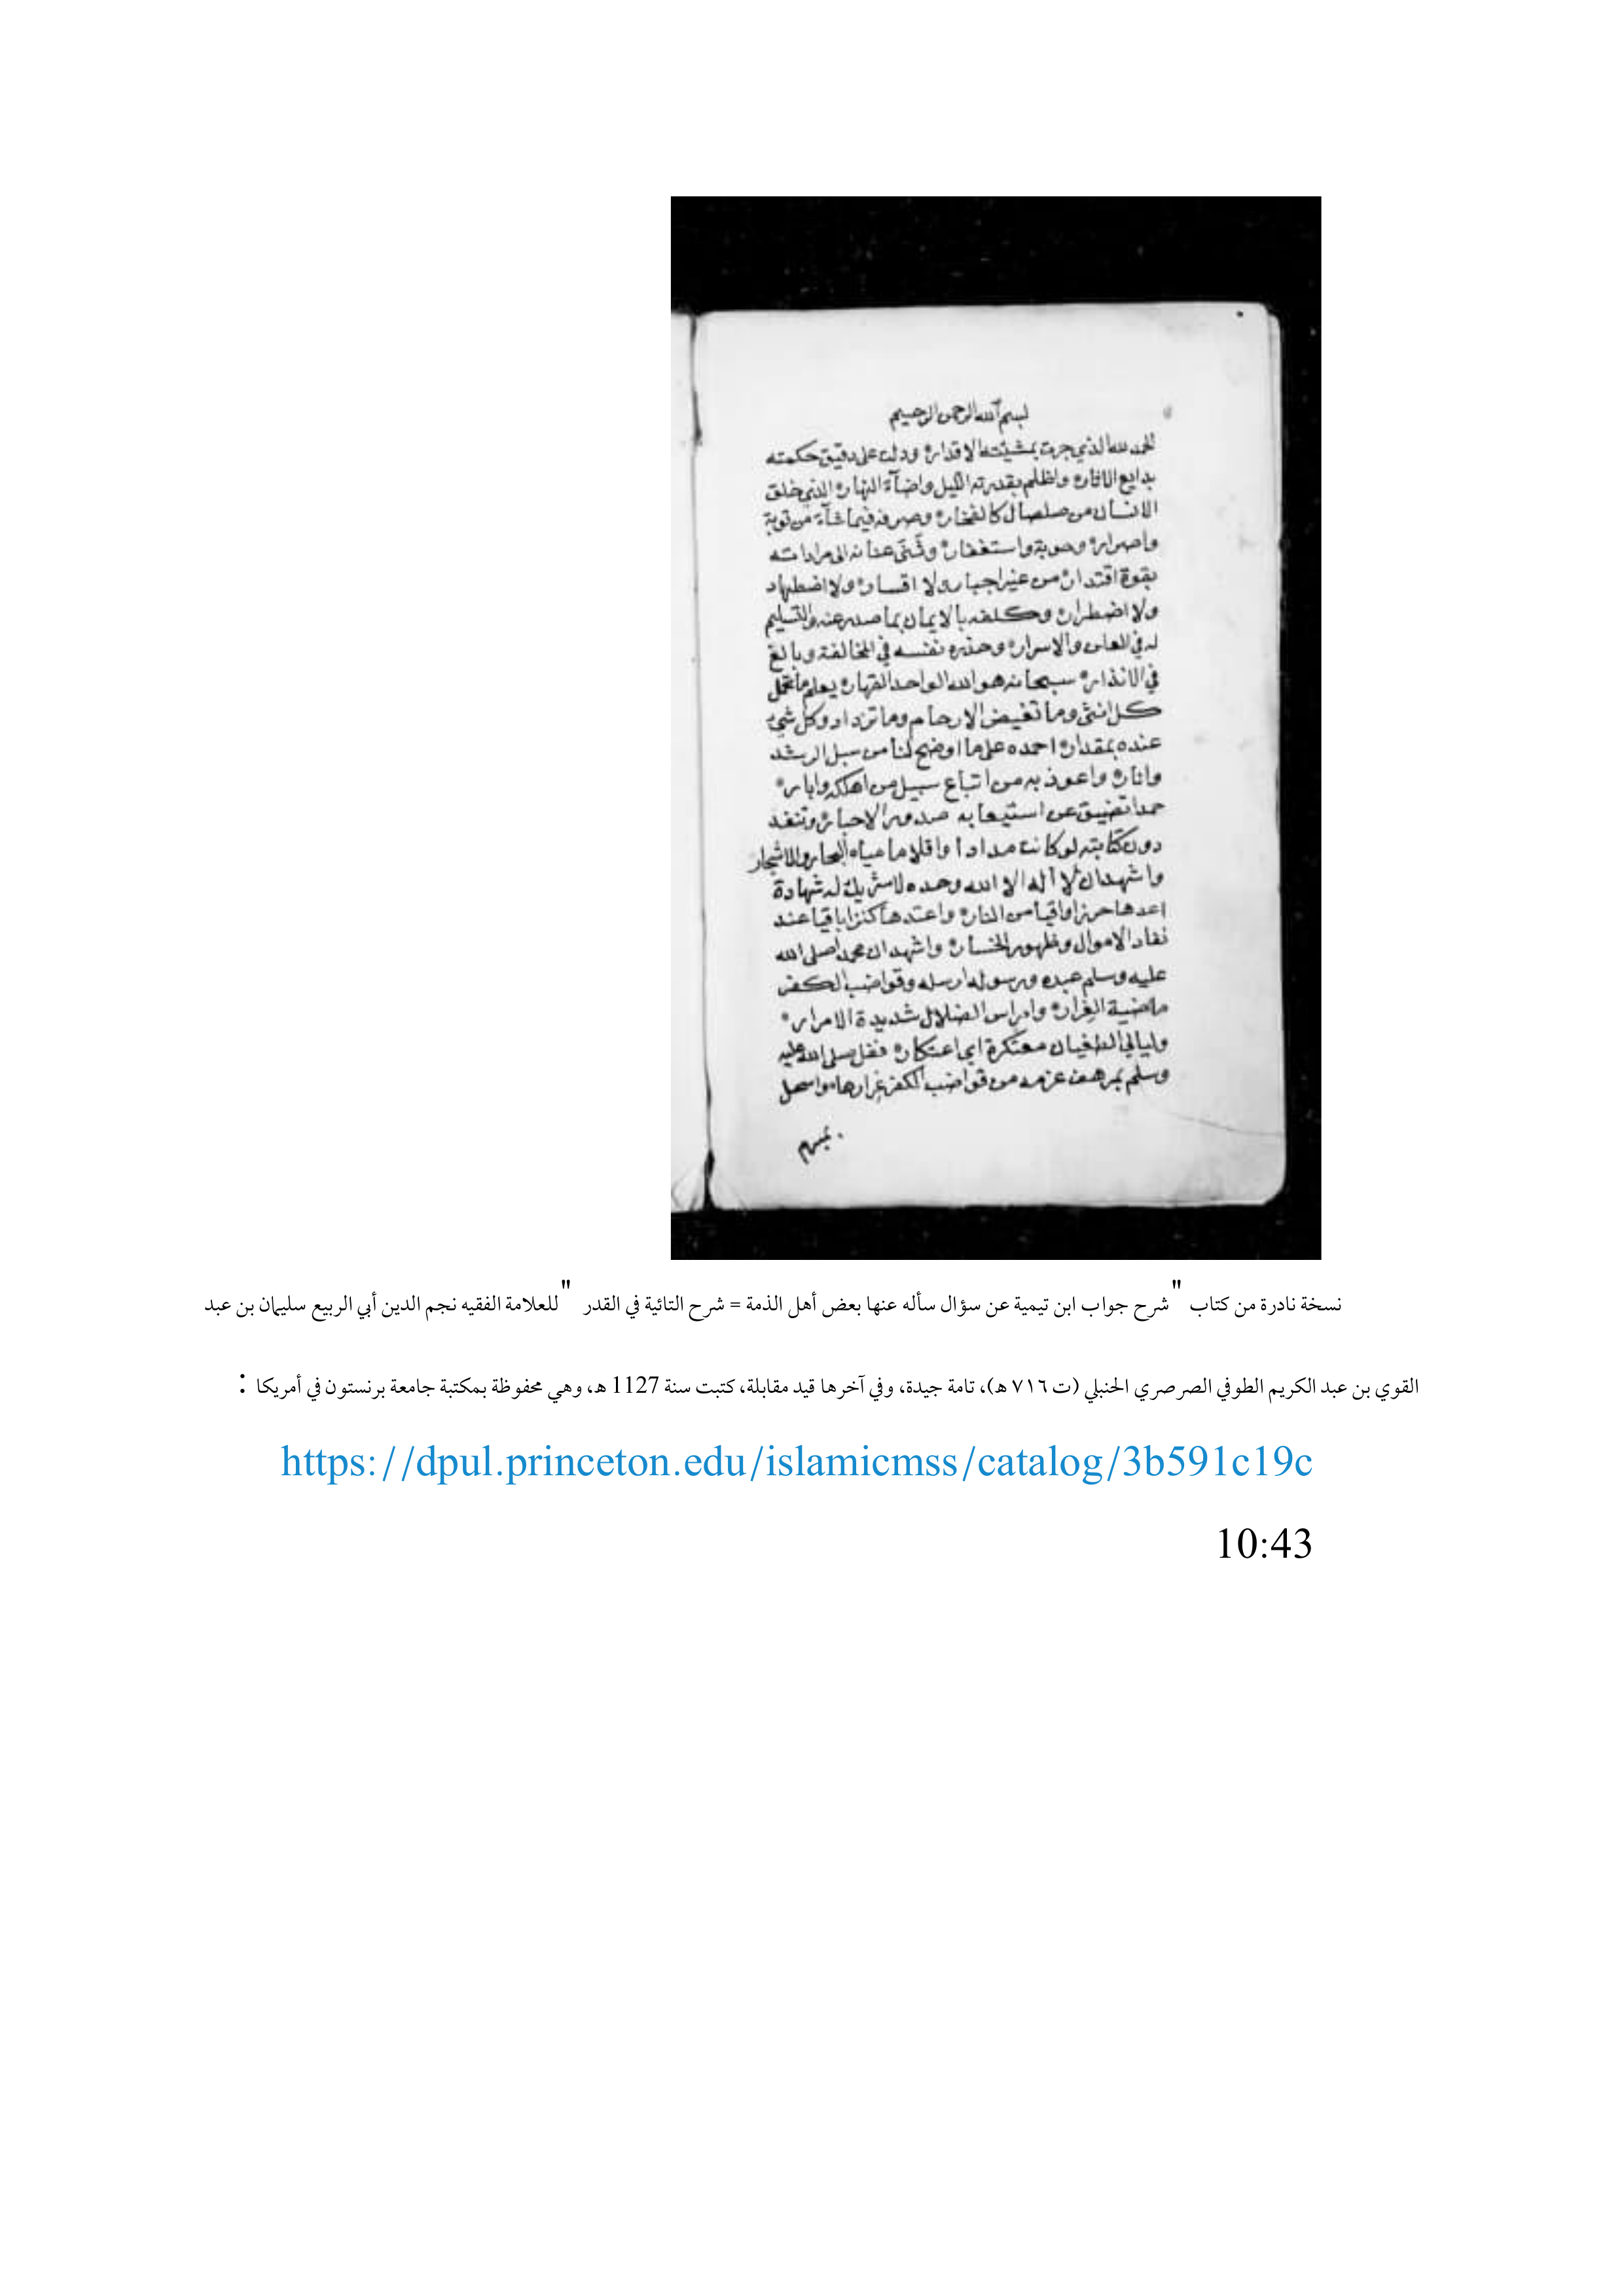 بسم الله الرحمن الرحيم
الحمد لله الذي جرت بمشيئته الاقدار ودلت على دقيق حكمته
بدايع الاثار واظلم بقدرته الليل واضآة النهار الذي خلق
الانسان من صلصال كالفخار وصرفه فيما شآء من توبة
واصرار وحوبة واستغفار وثنى عنانه الى مراداته
بقوة اقتدار من غير اجبار ولا اقسار ولا اضطهاد
ولا اضطرار وكلفه بالايمان بما صدر عنه والتسليم
له في العلن والاسرار وحذره نفسه في المخالفة وبالغ
في الانذار سبحانه هو الله الواحد القهار يعلم ما تحمل
كل انثى وما تغيض الارحام وما تزداد وكل شيء
عنده بمقدار احمده على ما اوضح لنا من سبل الرشد
وانار واعوذ به من اتباع سبيل من اهلكه وابار
حمدا تضيق عن استيعابه صدور الاحبار وتنفد
دون كتابته لو كانت مدادا واقلاما مياه البحار والاشجار
واشهد ان لا اله الا الله وحده لا شريك له شهادة
اعدها حرزا واقيا من النار واعتدها كنزا باقيا عند
نفاد الاموال وظهور الخسار واشهد ان محمدا صلى الله
عليه وسلم عبده ورسوله ارسله وقواضب الكفر
ماضية الغرار وامراس الضلال شديدة الامرار
وليالي الطغيان معتكرة اي اعتكار ففل صلى الله عليه
وسلم بمرهف عزمه من قواضب الكفر غرارها واسحل
نسخة نادرة من كتاب "شرح جواب ابن تيمية عن سؤال سأله عنها بعض أهل الذمة = شرح التائية في القدر " للعلامة الفقيه نجم الدين أبي الربيع سليمان بن عبد
القوي بن عبد الكريم الطوفي الصرصري الحنبلي (ت ٧١٦ هـ)، تامة جيدة، وفي آخرها قيد مقابلة، كتبت سنة 1127 هـ، وهي محفوظة بمكتبة جامعة برنستون في أمريكا :
https://dpul.princeton.edu/islamicmss/catalog/3b591c19c
10:43